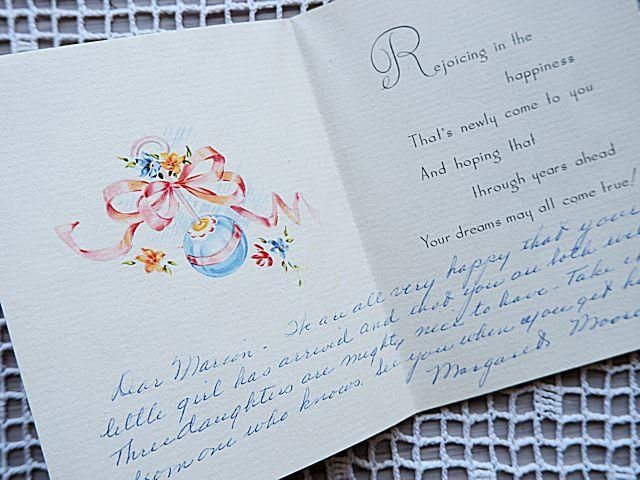 Rejoicing in the
happiness
That's newly come to you
And hoping that
through years ahead
Your dreams may all come true!
Dear Marion - We are all very happy that your
little girl has arrived and that you are both
Three daughters are mighty nice to have - Take
from one who knows. See you when you get
Margaret Moore